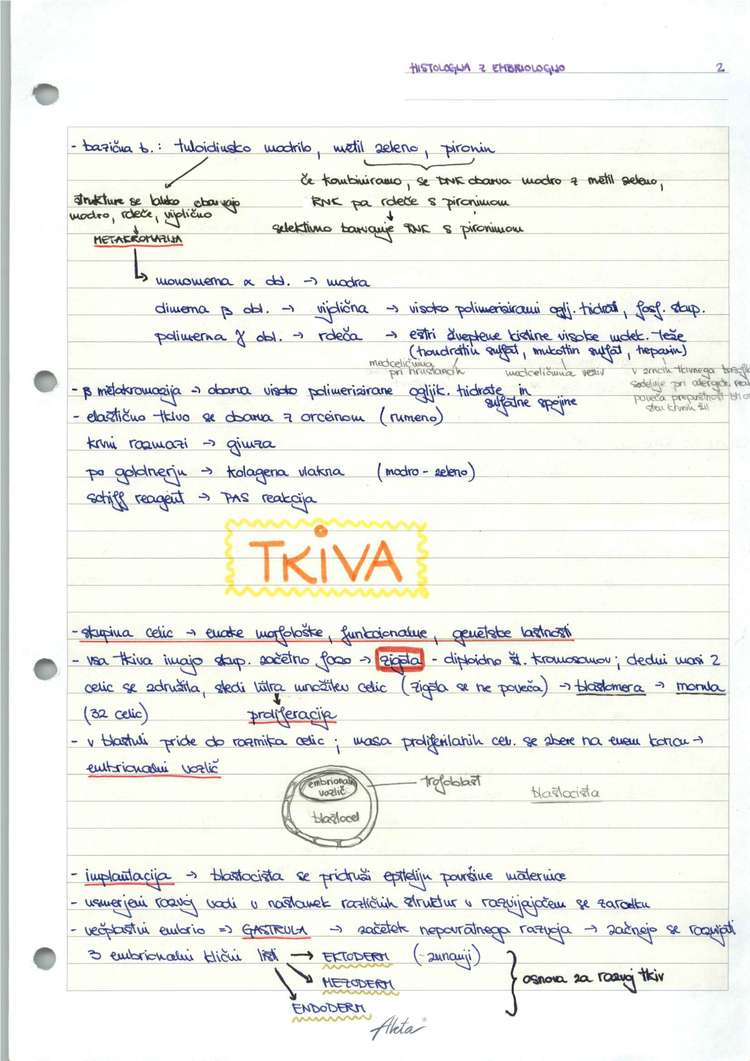 HISTOLOGIJA Z EMBRIOLOGIJO 2
- bazična b.: tuloidinsko modrilo, metil zeleno, pironin
če kombiniramo, se DNK obarva modro z metil zeleno,
RNK pa rdeče s pironinom
selektivno barvanje RNK s pironinom
strukture se lahko obarvajo
modro, rdeče, vijolično
METAKROMAZIJA
monomerna α obl. → modra
dimerna β obl. → vijolična → visoko polimerizirani oglj. hidrati, fosf. skup.
polimerna γ obl. → rdeča → estri žveplene kisline visoke molek. teže
(hondroitin sulfat, mukoitin sulfat, heparin)
medceličnina
pri hrustancih
medceličnina veziv
v zrncih tkivnega bazofilca
sodeluje pri alergičn. reak
poveča prepustnost
sten krvnih žil
- β metakromazija → obarva visoko polimerizirane ogljik. hidrate in
sulfatne spojine
- elastično tkivo se obarva z orceinom (rumeno)
krvni razmazi → gimza
po goldnerju → kolagena vlakna (modro-zeleno)
schiff reagent → PAS reakcija
TKIVA
- skupina celic → enake morfološke, funkcionalne, genetske lastnosti
- vsa tkiva imajo skup. začetno fazo → zigota - diploidno št. kromosomov; dedni masi 2
celic se združita, sledi hitra množitev celic (zigota se ne poveča) → blastomera → morula
(32 celic) proliferacija
- v blastuli pride do razmika celic; masa proliferilanih cel. se zbere na enem koncu →
embrionalni vozlič
embrionalni
vozlič
trofoblast
blastocista
blastocel
- implantacija → blastocista se pridruži epiteliju površine maternice
- usmerjeni razvoj vodi v nastanek različnih struktur v razvijajočem se zarodku
- večplastni embrio => GASTRULA → začetek nepovratnega razvoja → začnejo se razvijati
3 embrionalni klični listi → EKTODERM (-zunanji)
MEZODERM
osnova za razvoj tkiv
ENDODERM
Aleta